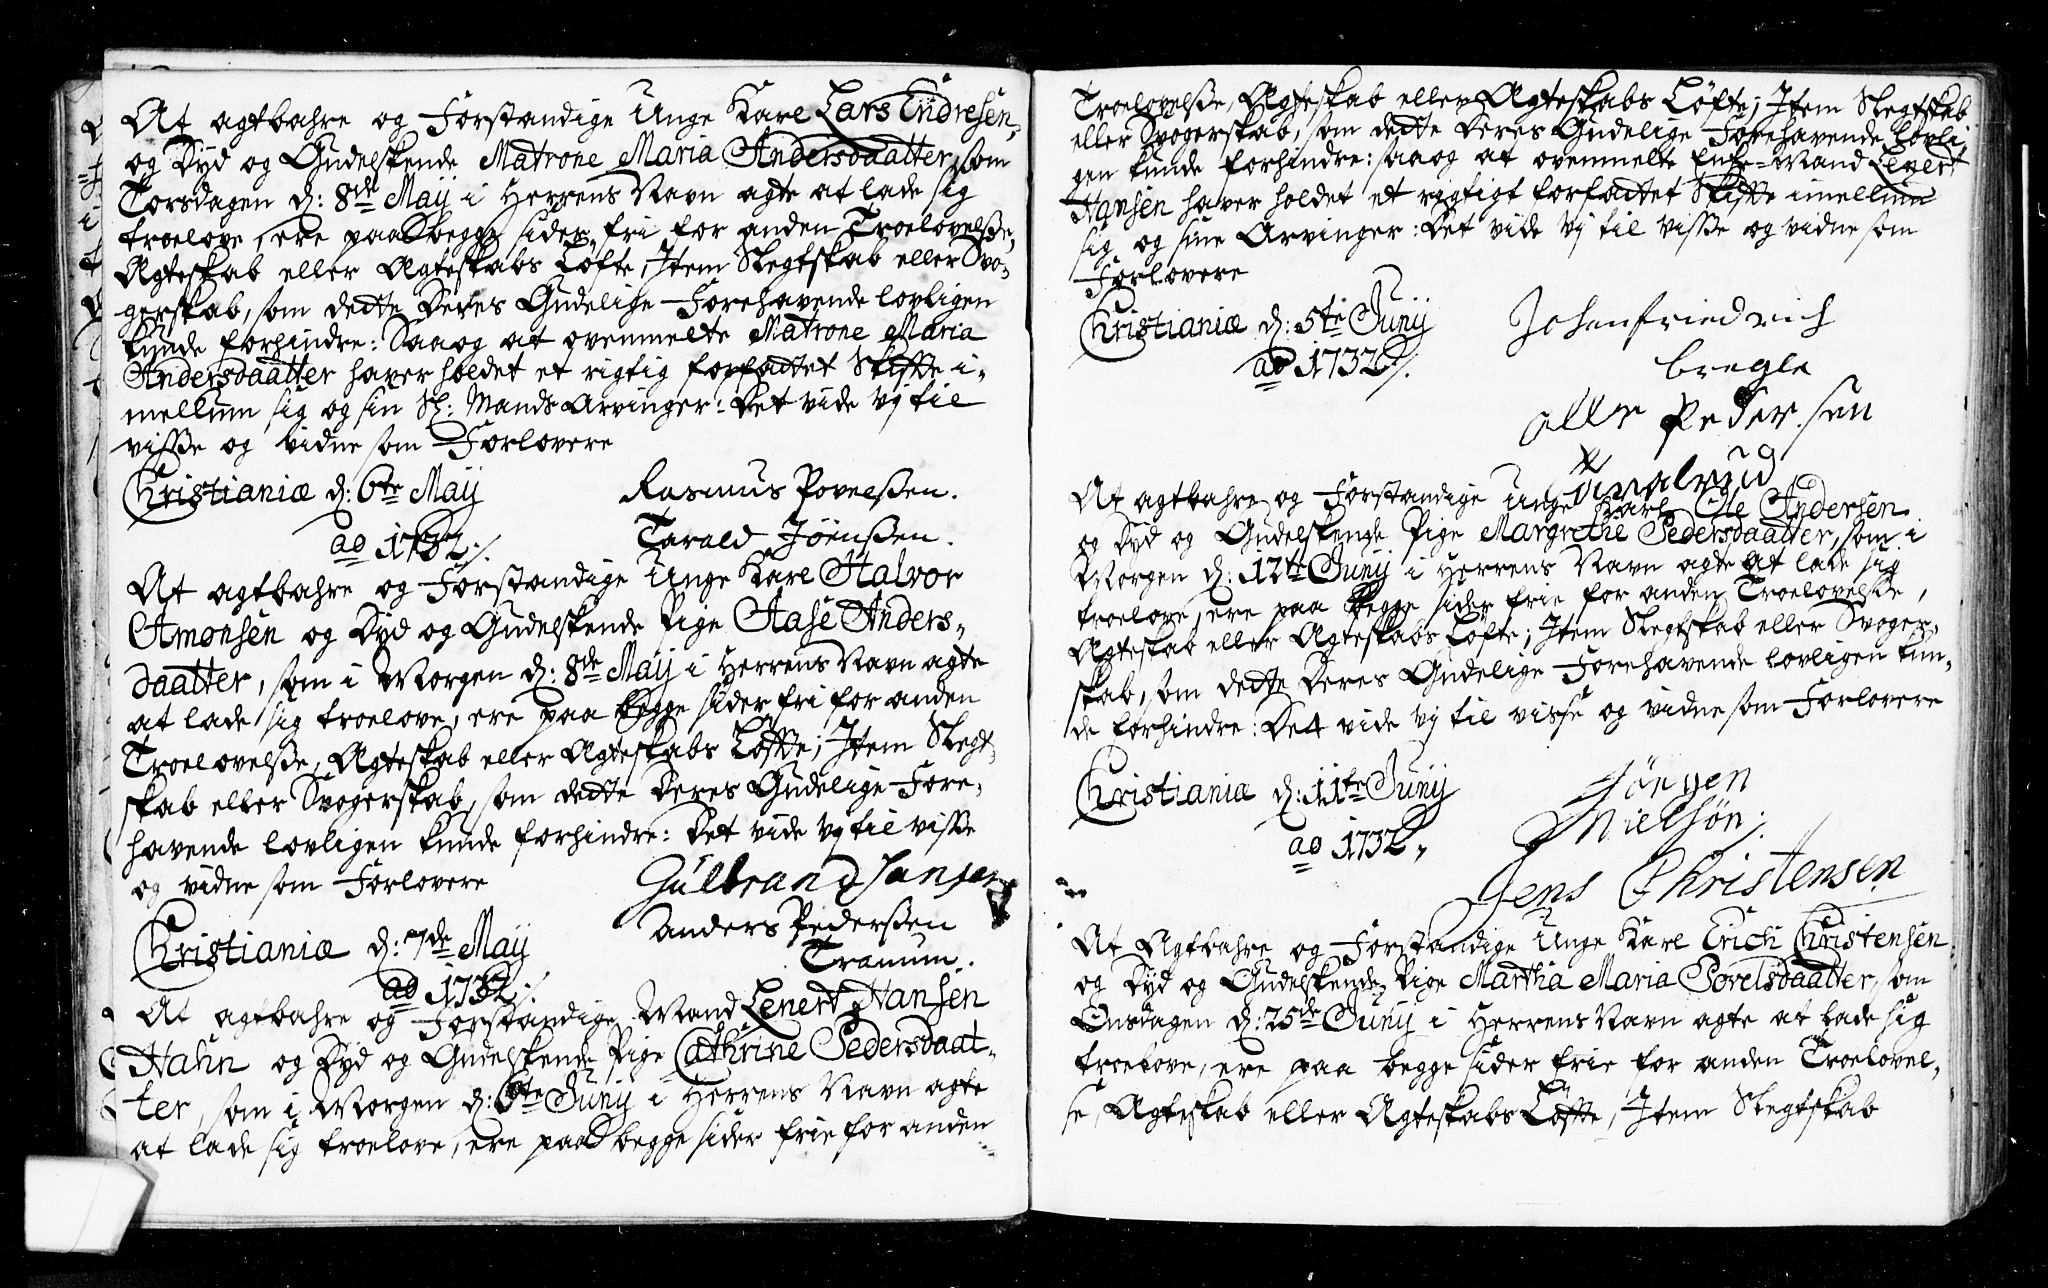 At agtbahre og Forstandige Unge Karl Lars Endresen,
og Dyd og Gudelskende Matrone Maria Andersdaatter, som
Torsdagen d: 8de Maij i Herrens Navn agte at lade sig
troelove, ere paa begge sider fri for anden Troelovelße,
Ægteskab eller Ægteskabs Løfte, Item Slegtskab eller Svo-
gerskab, som dette deres Gudelige Forehavende lovligen
kunde forhindre: Saa og at ovenmelte Matrone Maria
Andersdaatter haver holdet et rigtig forfattet Skifte i-
mellum sig og sin Sl: Mands Arvinger: Det vide Vj til
visße og vidne som Forlovere
Christianiæ d: 6te Maij
ao 1732 ⁒
Rasmus Povelßen.
Tarald Jöenßen.
At agtbahre og Forstandige Unge Karl Halvor
Amonsen og Dyd og Gudelskende Pige Aase Anders-
daatter, som i Morgen d: 8de Maij i Herrens Navn agte
at lade sig troelove, ere paa begge sider fri for anden
Troelovelße, Ægteskab eller Ægteskabs Løfte; Item Slegt-
skab eller Svogerskab, som dette deres Gudelige Fore-
havende lovligen kunde forhindre: Det vide Vj til visße
og vidne som Forlovere
Gulbrand Hansen
Anders Pederßen
Tranum.
Christianiæ d: 7de Maij
ao 1732 ⁒
At agtbahre og Forstandige Mand Lenert Hansen
Hahn og Dyd og Gudelskende Pige Cathrine Pedersdaat-
ter, som i Morgen d: 6te Junij i Herrens Navn agte
at lade sig troelove, ere paa begge sider frie for anden
Troelovelße, Ægteskab eller Ægteskabs Løfte; Item Slegtskab
eller Svogerskab, som dette deres Gudelige Forehavende lovli-
gen kunde forhindre: saa og at ovenmelte Enke-Mand Lenert
Hansen haver holdet et rigtigt forfattet Skifte imellum
sig og sine Arvinger: Det vide Vj til visße og vidne som
Forlovere
Christianiæ d: 5te Junij
ao 1732 ⁒
Johan friedrich
bregle
Pedersen
At agtbahre og Forstandige Unge Karl Ole Andersen
og Dyd og Gudelskende Pige Margrethe Pedersdaatter, som i
Morgen d: 12te Junij i Herrens Navn agte at lade sig
troelove, ere paa begge sider frie for anden Troelovelße,
Ægteskab eller Ægteskabs Løfte; Item Slegtskab eller Svoger-
skab, som dette deres Gudelige Forehavende lovligen kun-
de forhindre: Det vide Vj til visse og vidne som Forlovere
Christianiæ d: 11te Junij
ao 1732,
Jörgen
Nielsön
Jens Christensen
At Agtbahre og Forstandige Unge Karl Erich Christensen
og Dyd og Gudelskende Pige Martha Maria Povelsdaatter, som
Onsdagen d: 25de Junij i Herrens Navn agte at lade sig
troelove, ere paa begge sider frie for anden Troelovel-
se, Ægteskab eller Ægteskabs Løfte, Item Slegtskab